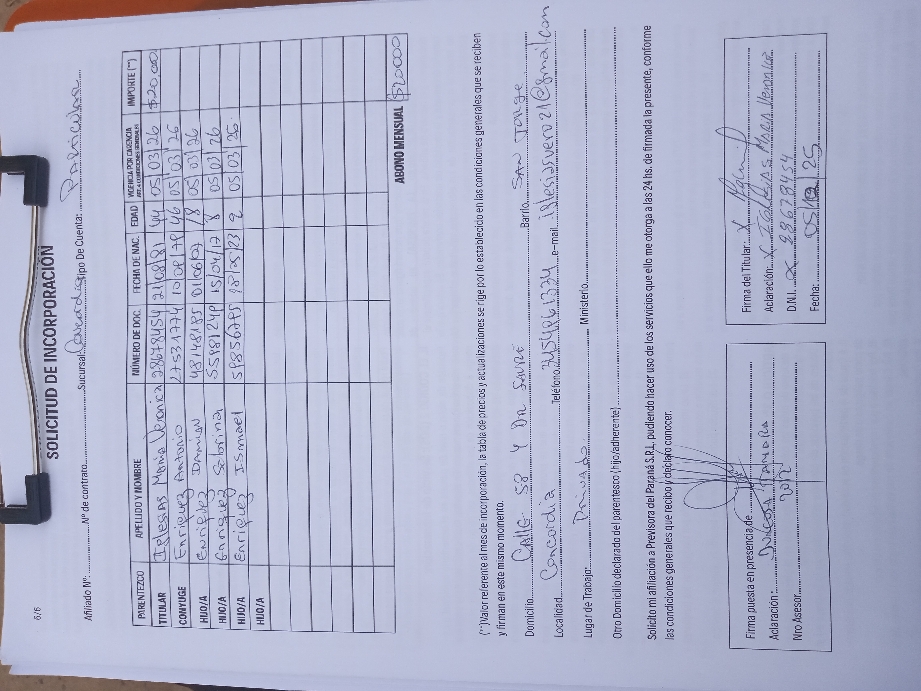 6/6
SOLICITUD DE INCORPORACIÓN
Afiliado Nº: Nº de contrato Sucursal Concordia Tipo De Cuenta: Particular
PARENTEZCO APELLIDO Y NOMBRE NÚMERO DE DOC. FECHA DE NAC. EDAD VIGENCIA POR CARENCIA IMPORTE (*)
TITULAR Iglesias Maria Veronica 28678454 21/08/81 44 05/03/26 $20.000
CONYUGE Enriquez Antonio 27531774 10/09/79 46 05/03/26
HIJO/A Enriquez Damian 48148185 01/06/07 18 05/03/26
HIJO/A Enriquez Sabrina 55981249 15/04/17 8 05/03/26
HIJO/A Enriquez Ismael 59856795 23 2 05/03/26
HIJO/A
ABONO MENSUAL $20000
(*) Valor referente al mes de incorporación, la tabla de precios y actualizaciones se rige por lo establecido en las condiciones generales que se reciben
y firman en este mismo momento.
Domicilio Calle 58 y Dr Sauré Barrio San Jorge
Localidad Concordia Teléfono 3454061334 e-mail iglesiasvero21@gmail.com
Lugar de Trabajo: Privado Ministerio
Otro Domicilio declarado del parentesco (hijo/adherente)
Solicito mi afiliación a Previsora del Paraná S.R.L, pudiendo hacer uso de los servicios que ello me otorga a las 24 hs. de firmada la presente, conforme
las condiciones generales que recibo y declaro conocer.
Firma puesta en presencia de
Aclaración: Sandra
Nro Asesor 2012
Firma del Titular: X
Aclaración: X Iglesias Maria Veronica
D.N.I. X 28678454
Fecha: 05 25